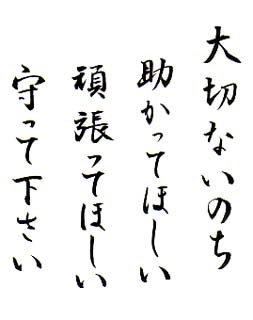 大切ないのち
助かってほしい
頑張ってほしい
守って下さい